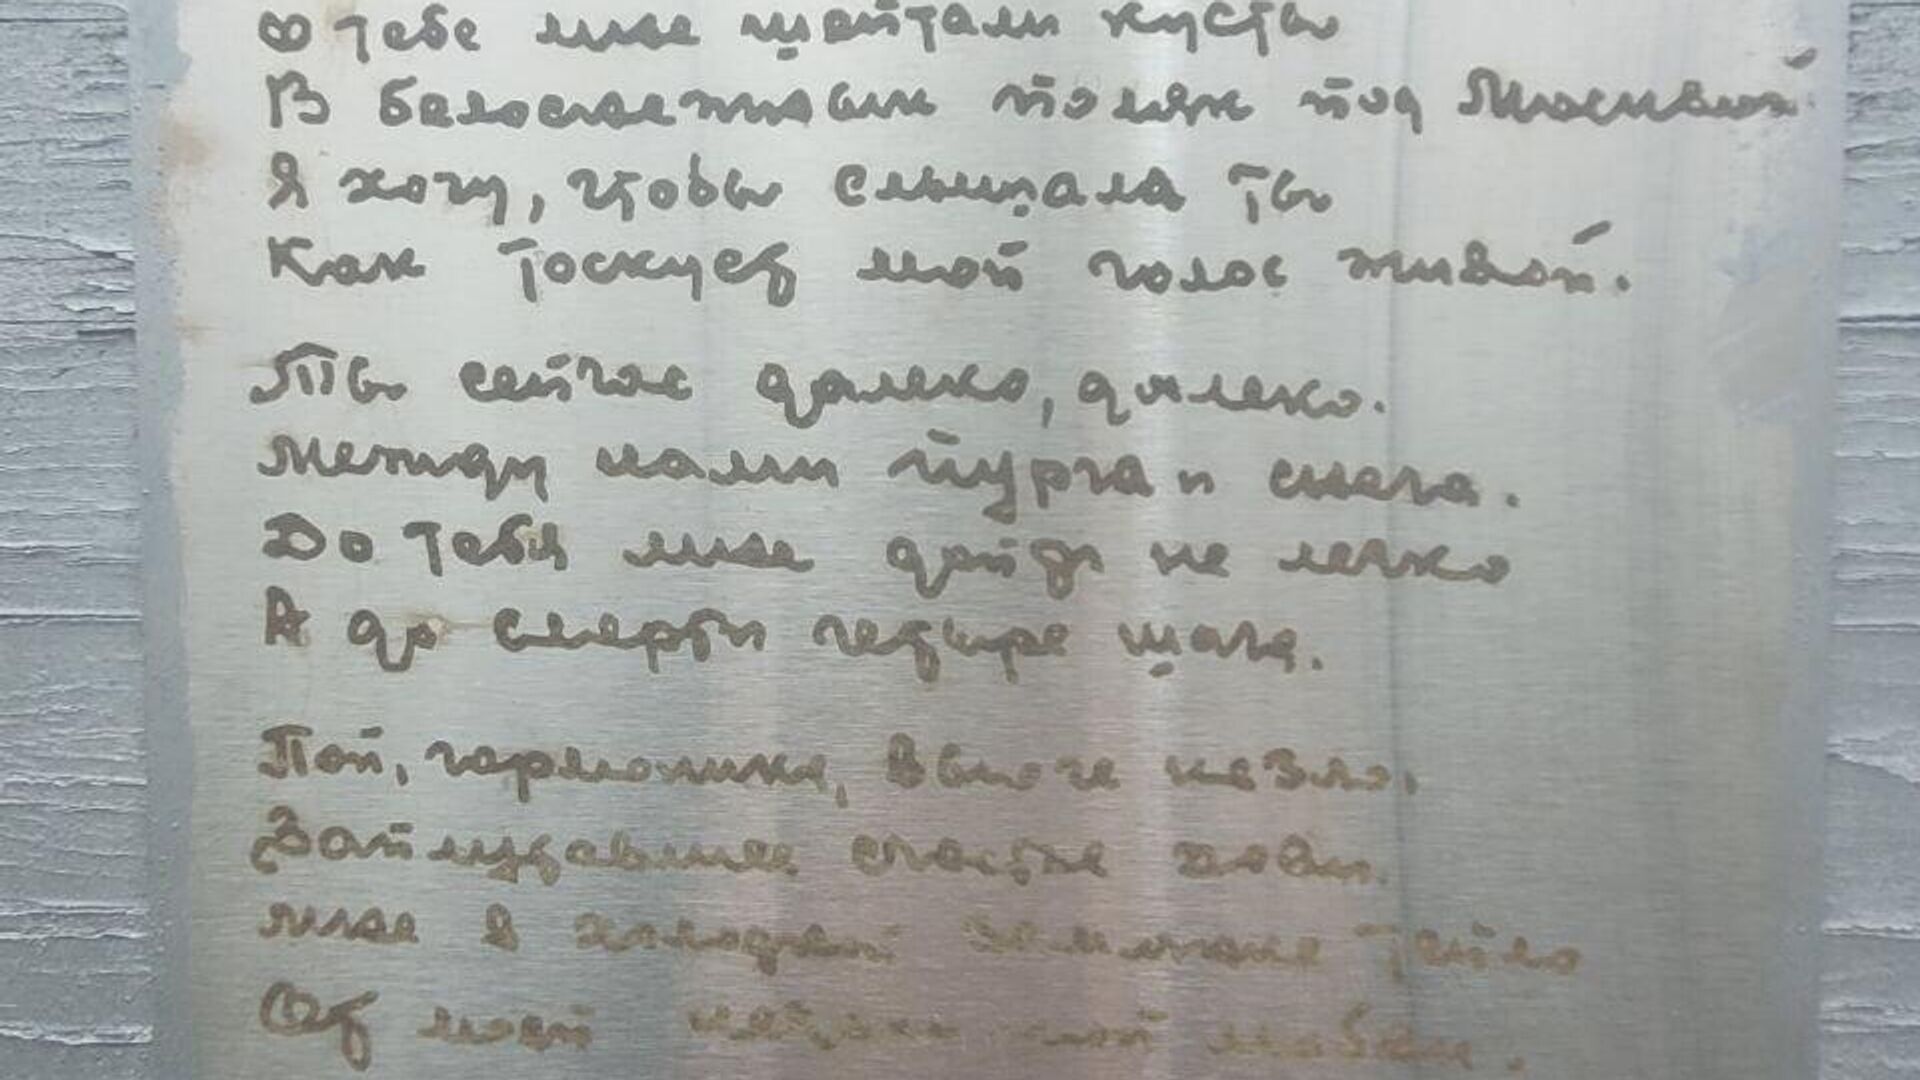 О тебе мне шептали кусты
В белоснежных полях под Москвой.
Я хочу, чтобы слышала ты
Как тоскует мой голос живой.
Ты сейчас далеко, далеко.
Между нами пурга и снега.
До тебя мне дойти не легко
А до смерти четыре шага.
Пой, гармоника, вьюге назло,
Заплутавшее счастье зови.
Мне в холодной землянке тепло
От моей негасимой любви.